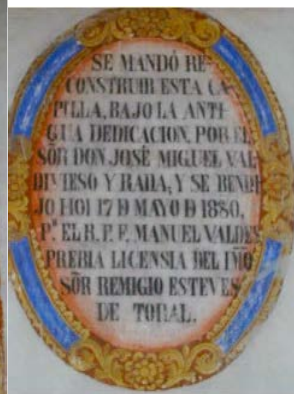 SE MANDÓ RE-
CONSTRUIR ESTA CA-
PILLA, BAJO LA ANTI-
GUA DEDICACION, POR EL
SÕR DON JOSÉ MIGUEL VAL-
DIVIESO Y RADA, Y SE BENDI-
JO HOI 17 D MAYO D 1880,
P.R EL R. P. F. MANUEL VALDES
PREBIA LICENSIA DEL IMO
SÕR REMIGIO ESTEVES
DE TORAL.